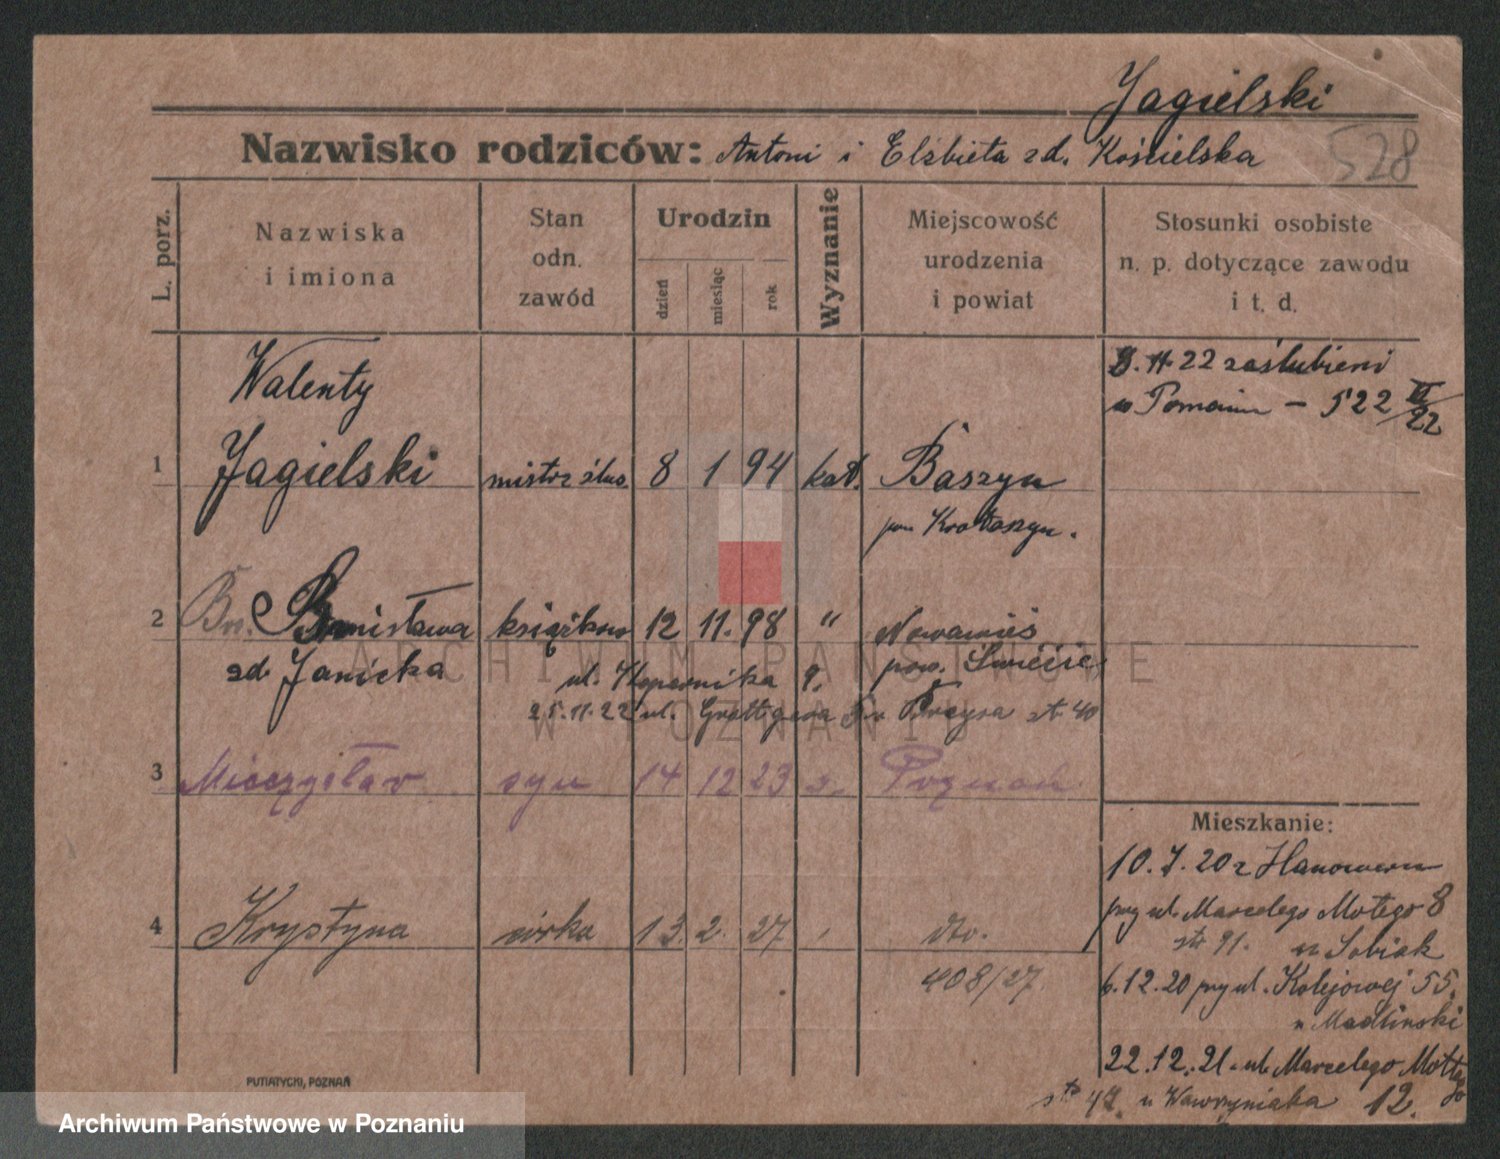 Jagielski
Nazwisko rodziców: Antoni i Elżbieta zd. Kościelska
528
L. porz.
Nazwiska
i imiona
Stan
odn.
zawód
Urodzin
dzień
miesiąc
rok
Wyznanie
Miejscowość
urodzenia
i powiat
Stosunki osobiste
n. p. dotyczące zawodu
i t. d.
11. 22 zaślubieni
w Poznaniu – 522 VI/22
Walenty
1 Jagielski mistrz ślus. 8 1 94 kat. Baszyn
pow Krotoszyn.
2 Br. Bronisława książkow 12 11. 98 " Nowawieś
zd. Janicka ul. Kopernika 9. pow. Świecie
25.11.22 ul. Grottgera st. 40
3 Mieczysław syn 14 12 23 Poznań
Mieszkanie:
10.7.20 z Hanoweru
przy ul. Marcelego Motego 8
str 91. u Sobiak
4 Krystyna córka 13. 2. 27 dto.
408/27.
6.12.20 przy ul. Kolejowej 55.
u Madlinski
22.12.21. ul. Marcelego Mottego
u Wawrzyniaka 12.
PUTIATYCKI, POZNAŃ
ARCHIWUM PAŃSTWOWE
W POZNANIU
Archiwum Państwowe w Poznaniu